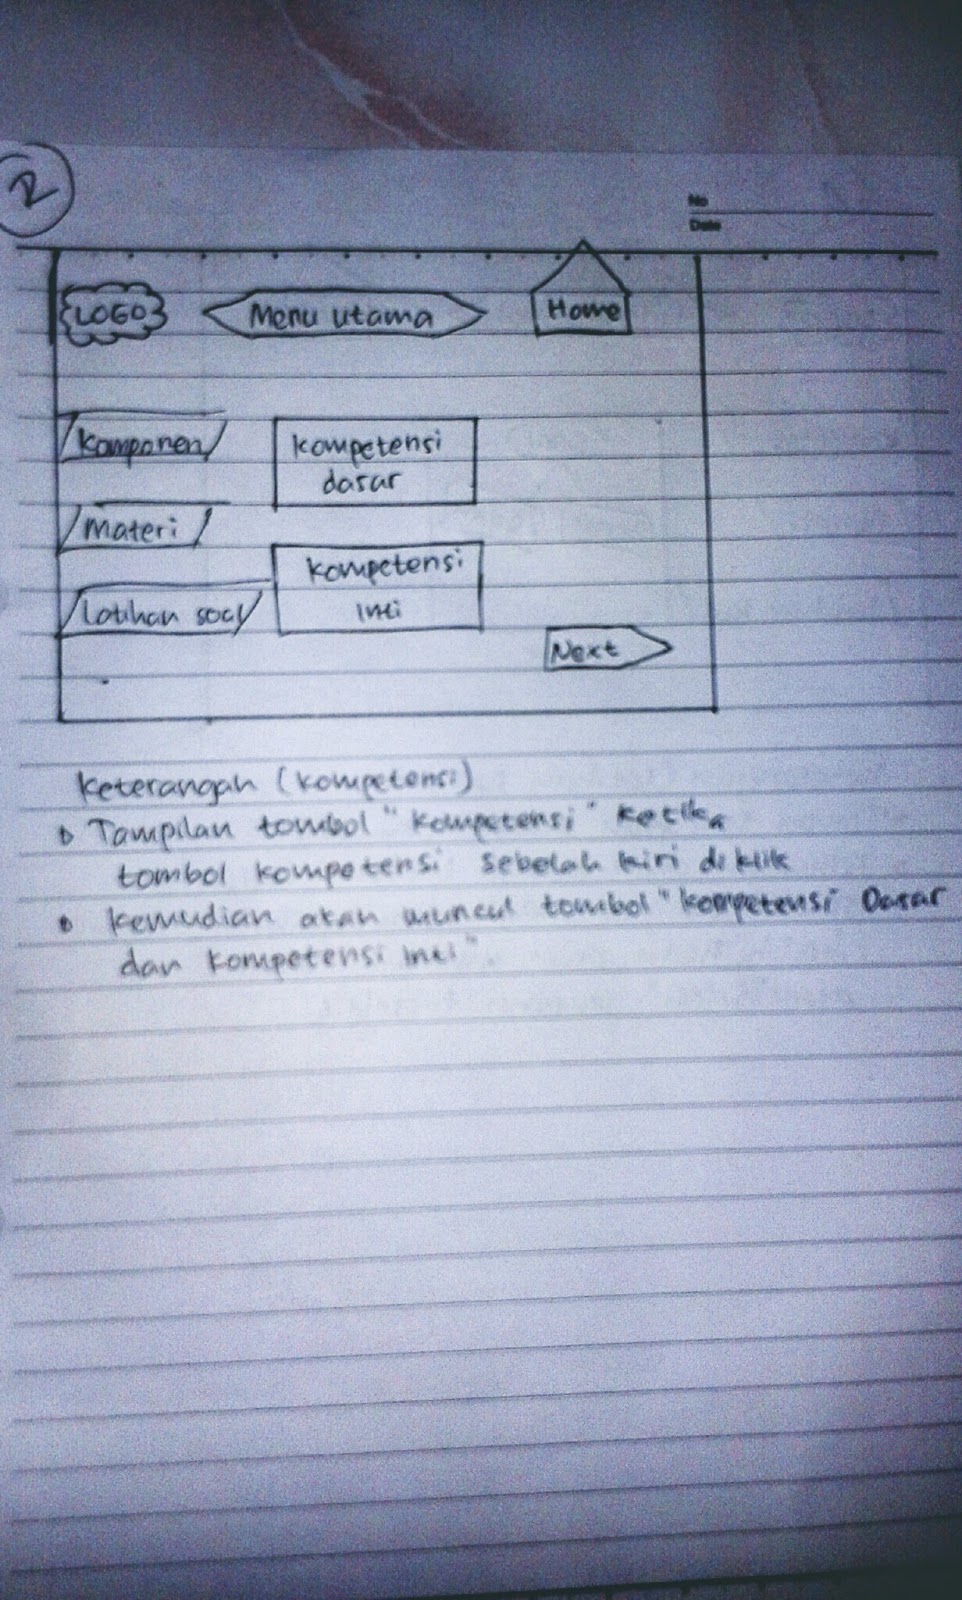 2
No
Date
LOGO
Menu utama
Home
Komponen
kompetensi
dasar
Materi
kompetensi
inti
Latihan soal
Next
Keterangan (kompetensi)
Tampilan tombol "kompetensi" ketika
tombol kompetensi sebelah kiri di klik
kemudian akan muncul tombol "kompetensi Dasar
dan kompetensi inti".